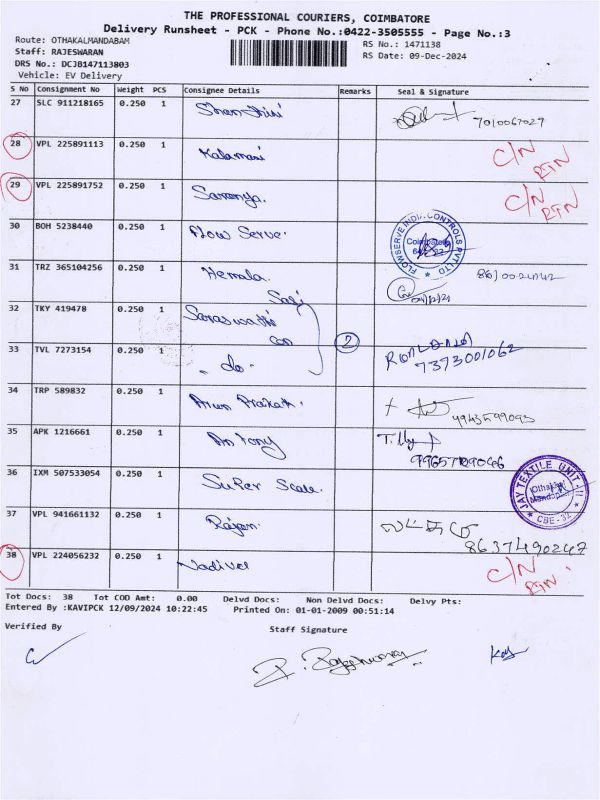 THE PROFESSIONAL COURIERS, COIMBATORE
Delivery Runsheet - PCK - Phone No.:0422-3505555 - Page No.:3
Route: OTHAKALMANDABAM
RS No.: 1471138
Staff: RAJESWARAN
RS Date: 09-Dec-2024
DRS No.: DCJB147113803
Vehicle: EV Delivery
S No Consignment No Weight PCS Consignee Details Remarks Seal & Signature
27 SLC 911218165 0.250 1 Shanthini 7010067027
28 VPL 225891113 0.250 1 Kalamani C/N RTN
29 VPL 225891752 0.250 1 Saranya. C/N RTN
30 BOH 5238440 0.250 1 Flow Serve. FLOWSERVE INDIA CONTROLS PVT LTD Coimbatore
31 TRZ 365104256 0.250 1 Hemala
32 TKY 419478 0.250 1 Saraswathi
33 TVL 7273154 0.250 1 - do - 2 7373001062
34 TRP 589832 0.250 1 Arun Prakash. 9943599093
35 APK 1216661 0.250 1 Antony
36 IXM 507533054 0.250 1 Super Scale. JAY TEXTILE UNIT-II CBE-32
37 VPL 941661132 0.250 1 Rajan. 8637490247
38 VPL 224056232 0.250 1 Vadivel C/N RTN
Tot Docs: 38 Tot COD Amt: 0.00 Delvd Docs: Non Delvd Docs: Delvy Pts:
Entered By :KAVIPCK 12/09/2024 10:22:45 Printed On: 01-01-2009 00:51:14
Verified By Staff Signature